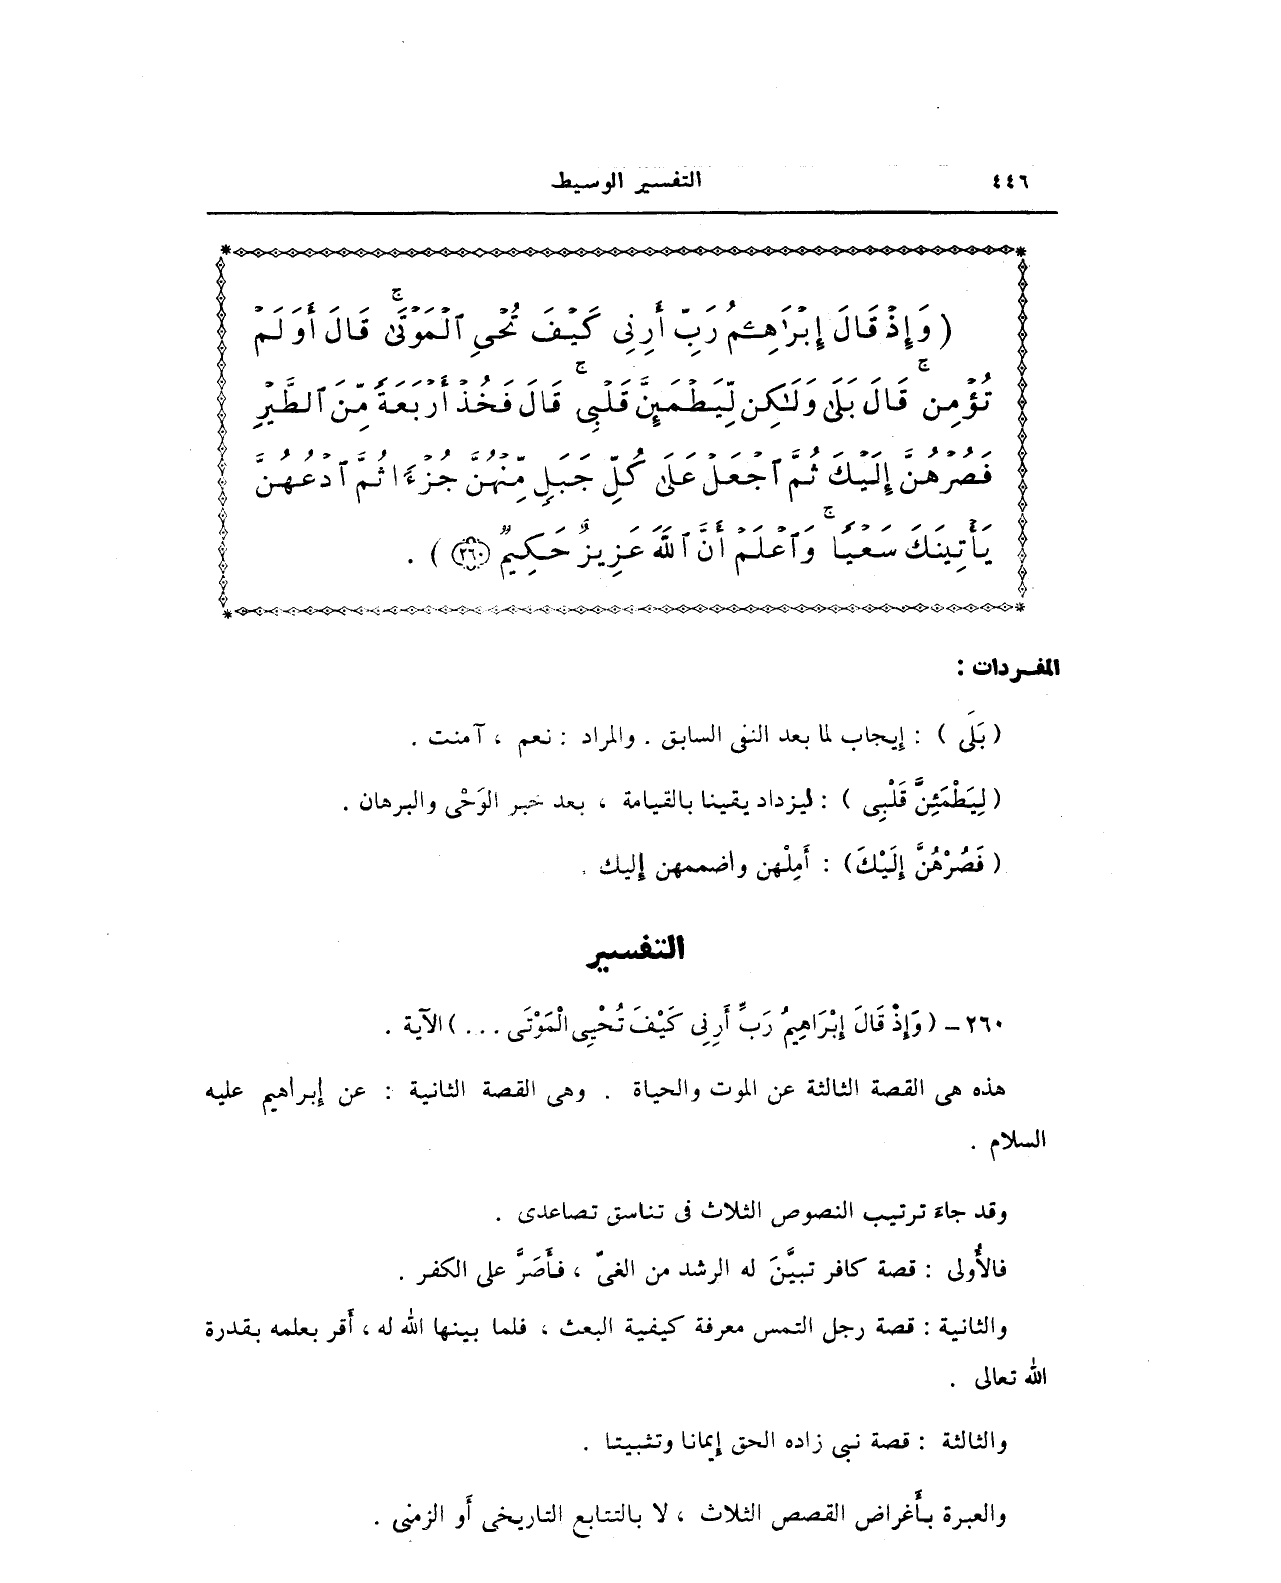 ٤٤٦
التفسير الوسيط
( وَإِذْ قَالَ إِبْرَٰهِـۧمُ رَبِّ أَرِنِى كَيْفَ تُحْىِ ٱلْمَوْتَىٰ ۖ قَالَ أَوَلَمْ
تُؤْمِن ۖ قَالَ بَلَىٰ وَلَٰكِن لِّيَطْمَئِنَّ قَلْبِى ۖ قَالَ فَخُذْ أَرْبَعَةً مِّنَ ٱلطَّيْرِ
فَصُرْهُنَّ إِلَيْكَ ثُمَّ ٱجْعَلْ عَلَىٰ كُلِّ جَبَلٍ مِّنْهُنَّ جُزْءًا ثُمَّ ٱدْعُهُنَّ
يَأْتِينَكَ سَعْيًا ۚ وَٱعْلَمْ أَنَّ ٱللَّهَ عَزِيزٌ حَكِيمٌ ٢٦٠ ) .
المفردات :
( بَلَى ) : إيجاب لما بعد النفى السابق . والمراد : نعم ، آمنت .
( لِيَطْمَئِنَّ قَلْبِى ) : ليزداد يقينا بالقيامة ، بعد خبر الوَحْى والبرهان .
( فَصُرْهُنَّ إِلَيْكَ) : أَمِلْهن واضممهن إليك .
التفسير
٢٦٠ – ( وَإِذْ قَالَ إِبْرَاهِيمُ رَبِّ أَرِنِى كَيْفَ تُحْيِى الْمَوْتَى ... ) الآية .
هذه هى القصة الثالثة عن الموت والحياة . وهى القصة الثانية : عن إبراهيم عليه
السلام .
وقد جاءَ ترتيب النصوص الثلاث فى تناسق تصاعدى .
فالأُولى : قصة كافر تبيَّنَ له الرشد من الغىّ ، فأَصَرَّ على الكفر .
والثانية : قصة رجل التمس معرفة كيفية البعث ، فلما بينها الله له ، أَقر بعلمه بقدرة
الله تعالى .
والثالثة : قصة نبى زاده الحق إيمانا وتثبيتا .
والعبرة بأَغراض القصص الثلاث ، لا بالتتابع التاريخى أَو الزمنى .